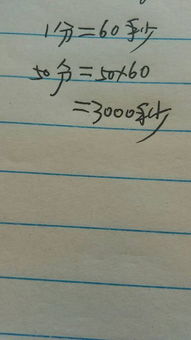 1分=60秒
50分=50×60
=3000秒